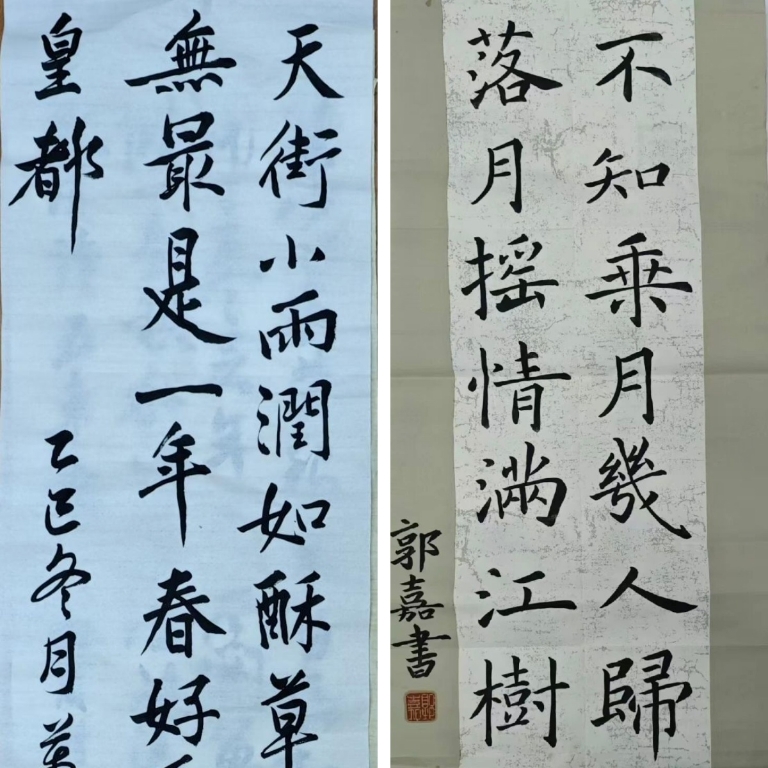 天街小雨潤如酥草
無最是一年春好
皇都
乙巳冬月
不知乗月幾人歸
落月摇情滿江樹
郭嘉書